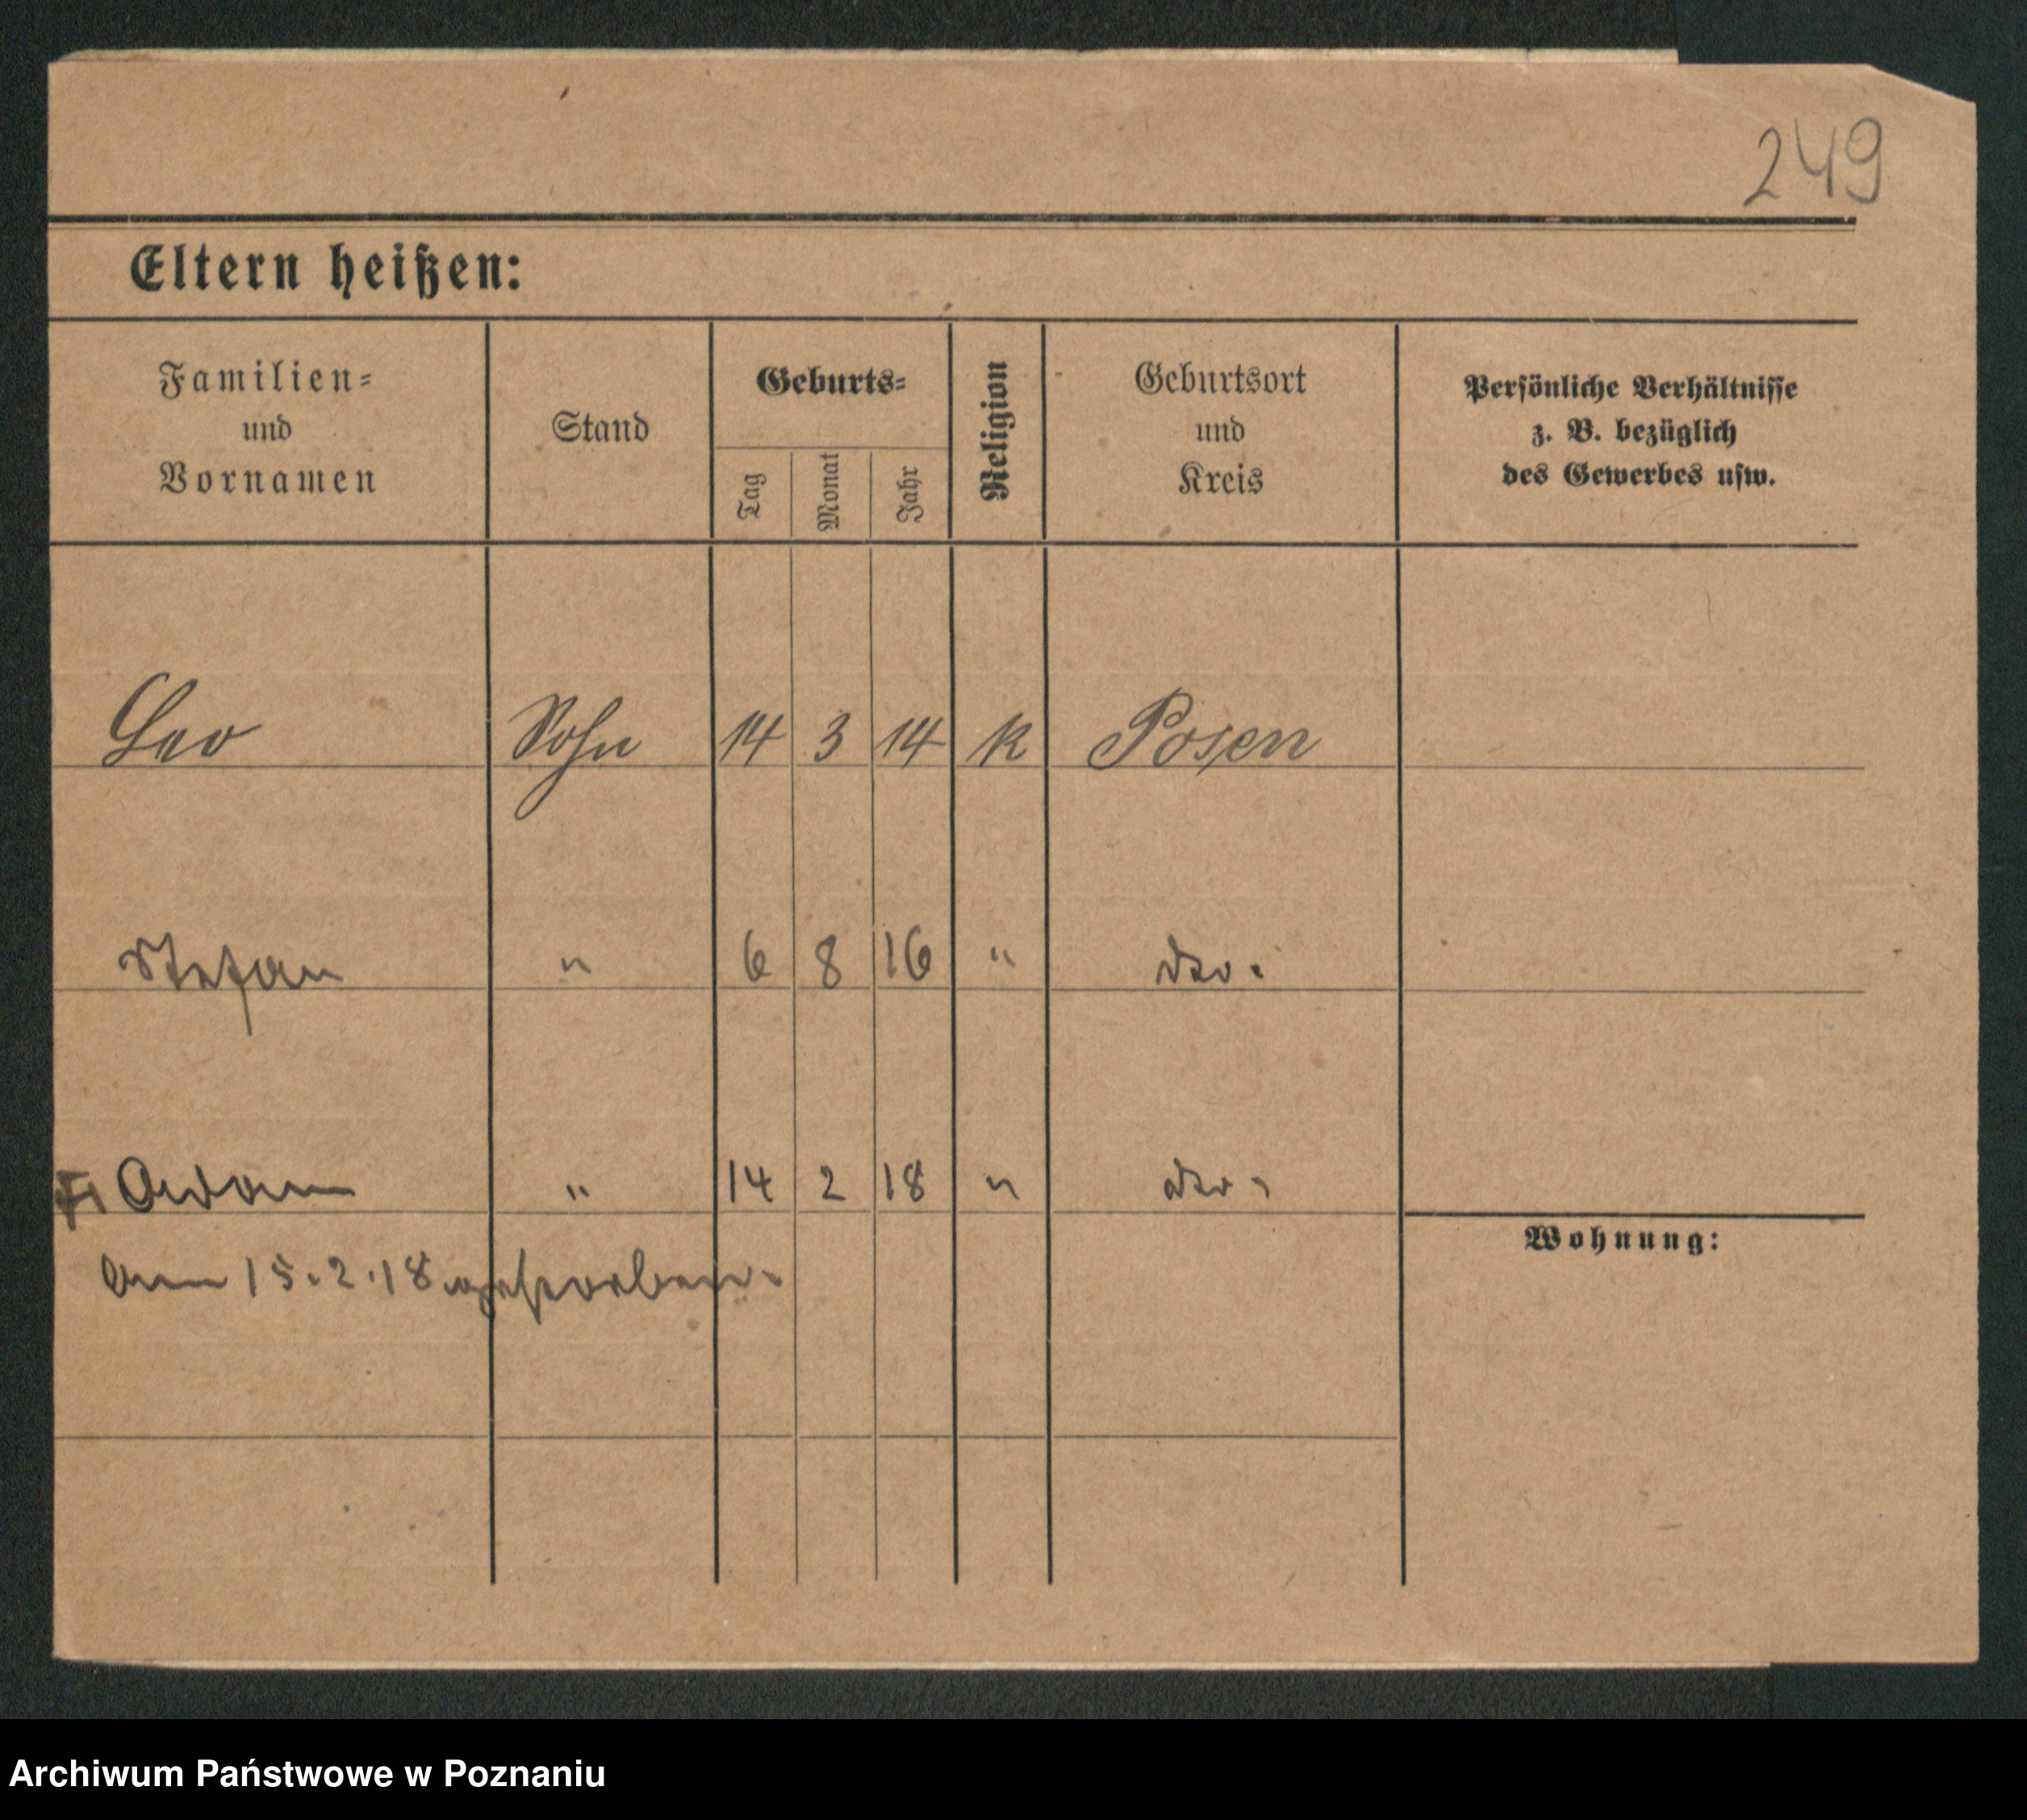 249
Eltern heißen:
Familien-
und
Vornamen
Stand
Geburts-
Tag
Monat
Jahr
Religion
Geburtsort
und
Kreis
Persönliche Verhältnisse
z. B. bezüglich
des Gewerbes usw.
Leo Sohn 14 3 14 K Posen
Stefan " 6 8 16 " dto.
Adam " 14 2 18 " dto.
am 15.2.18 gestorben.
Wohnung:
Archiwum Państwowe w Poznaniu